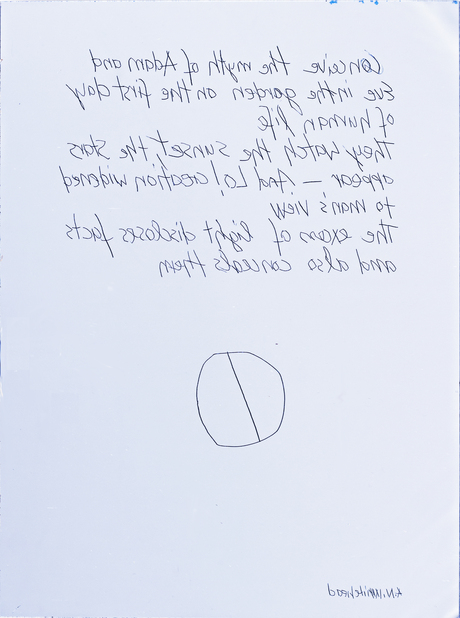 Conceive the myth of Adam and
Eve in the garden on the first day
of human life
They watch the sunset, the stars
appear — And Lo! creation widened
to man's view
The exces of light discloses facts
and also conceals them
A.N. Whitehead